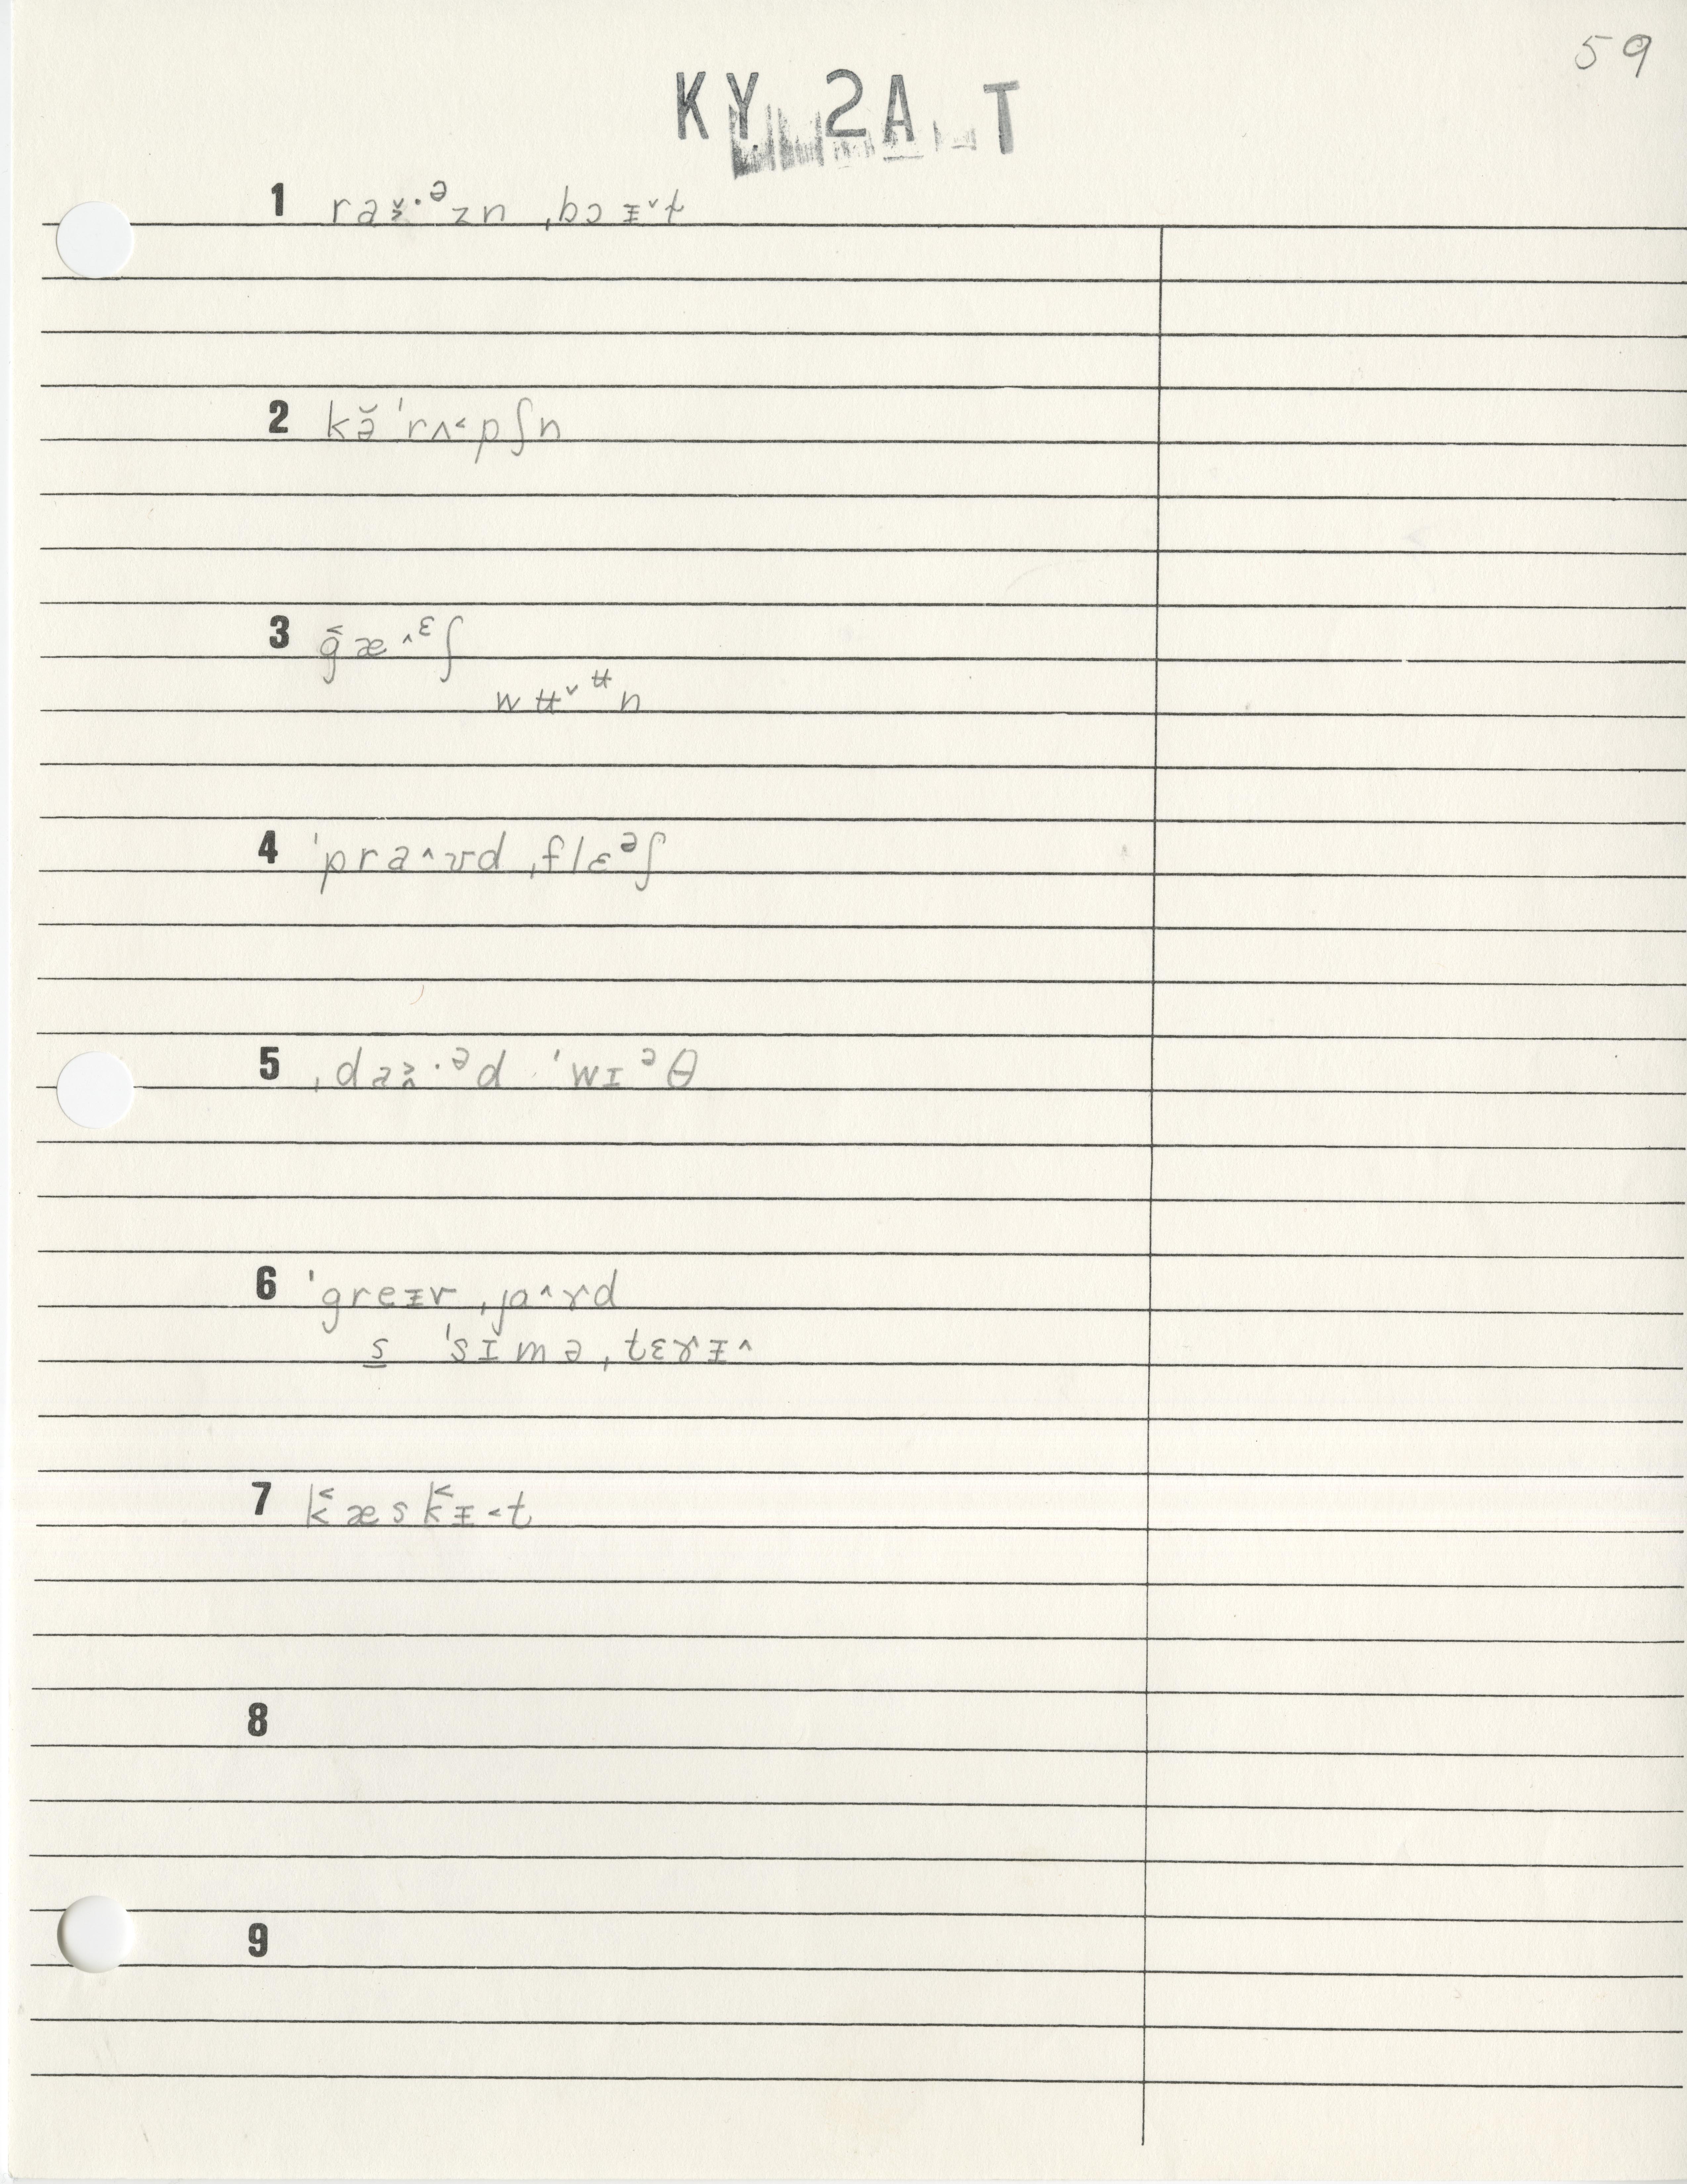 59
KY 2A T
1 raᵻ̬·ᵊzn ˌbɔᵻ˅t̬
2 kə̆ ˈrʌ˂pʃn
3 g̑æ˄ᵋʃ
wʉ˅ᶶn
4 ˈpra˄ʊd ˌflɛᵊʃ
5 ˌdaᵻ·ᵊd ˈwɪᵊθ
6 ˈgreᵻv ˌjɑ˄ɤd
s ˈsɪməˌtɛɤᵻ˄
7 k̑æsk̑ᵻ˂t
8
9